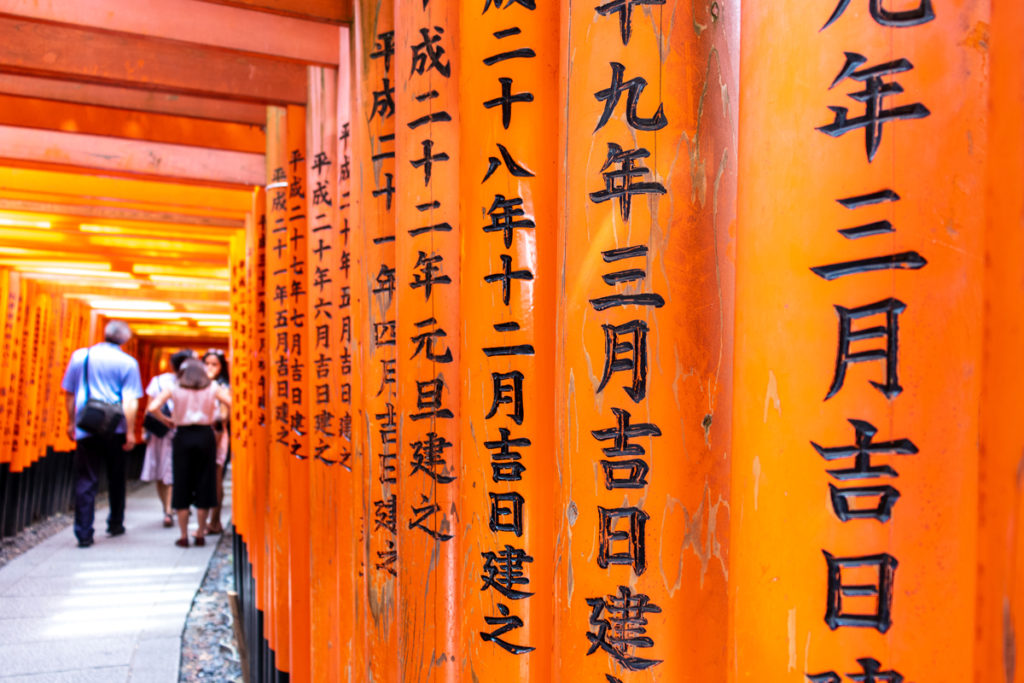 元年三月吉日建
十九年三月吉日建
二十八年十二月吉日建之
成二十二年元旦建之
平成二十一年四月吉日建之
平成二十年五月吉日建之
平成二十年六月吉日建之
平成二十七年七月吉日建之
平成二十一年五月吉日建之